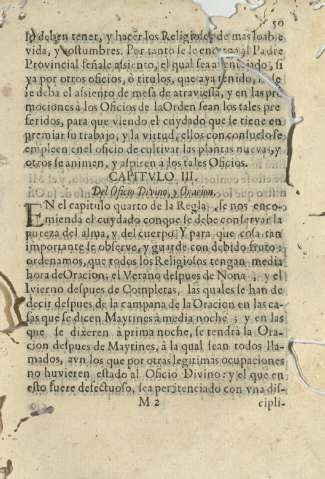 50
lo deben tener, y hacer los Religiosos de mas loable
vida, y costumbres. Por tanto se le encarga al Padre
Provincial señale assiento, el qual sea atendido, si
ya por otros oficios, ò titulos, que aya tenido, no se
le deba el assiento de mesa de atraviessa, y en las pro-
mociones à los Oficios de la Orden sean los tales pre-
feridos, para que viendo el cuydado que se tiene en
premiar su trabajo, y la virtud, ellos con consuelo se
empleen en el oficio de cultivar las plantas nuevas, y
otros se animen, y aspiren à los tales Oficios.
CAPITVLO III.
Del Oficio Divino, y Oracion.
EN el capitulo quarto de la Regla, se nos enco-
mienda el cuydado con que se debe conservar la
pureza del alma, y del cuerpo. Y para que cosa tan
importante se observe, y guarde con debido fruto:
ordenamos, que todos los Religiosos tengan media
hora de Oracion; el Verano despues de Nona; y el
Ivierno despues de Completas, las quales se han de
decir despues de la campana de la Oracion en las ca-
sas que se dicen Maytines à media noche; y en las
que se dixeren à prima noche, se tendrà la Ora-
cion despues de Maytines, à la qual sean todos lla-
mados, avn los que por otras legitimas ocupaciones
no huvieren estado al Oficio Divino: y el que en
esto fuere defectuoso, sea penitenciado con vna dis-
M 2 cipli-